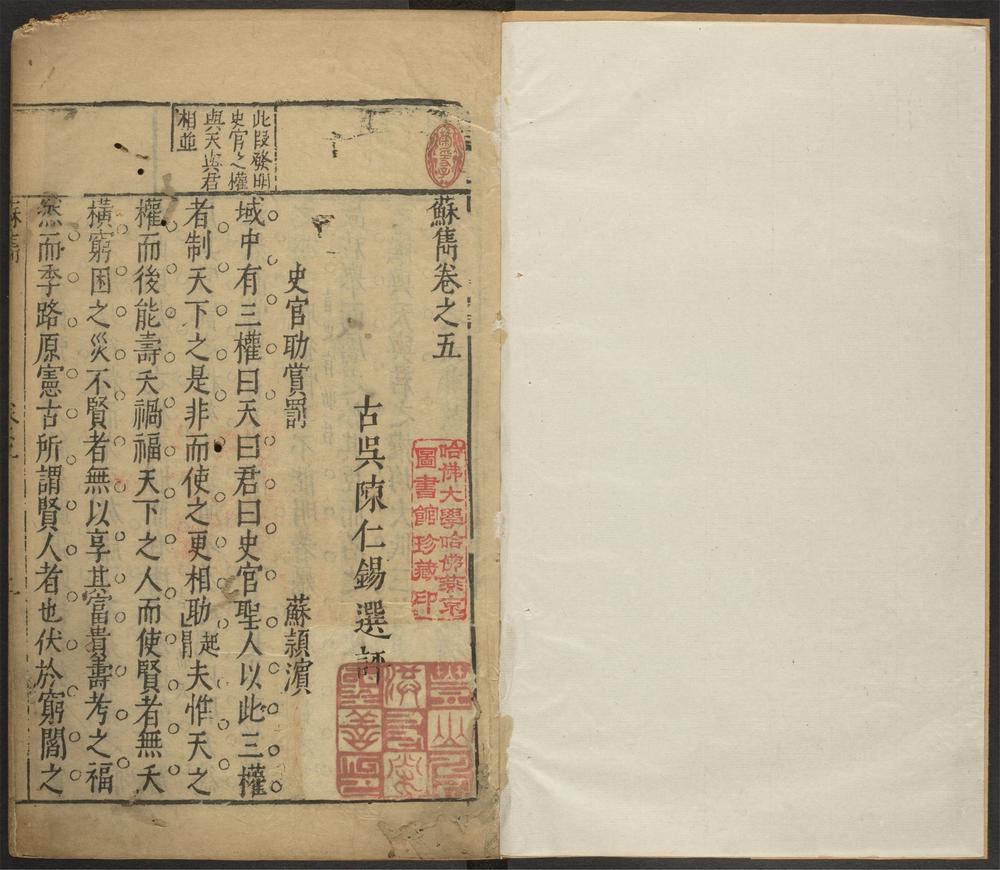 蘇雋卷之五
古吳陳仁錫選評
史官助賞罰 蘇潁濱
域中有三權曰天曰君曰史官聖人以此三權
者制天下之是非而使之更相助起門夫惟天之
權而後能壽夭禍福天下之人而使賢者無夭
橫窮困之災不賢者無以享其富貴壽考之福
然而季路原憲古所謂賢人者也伏於窮閻之
此段發明
史官之權
與天與君
相並
哈佛大學哈佛燕京
圖書館珍藏印